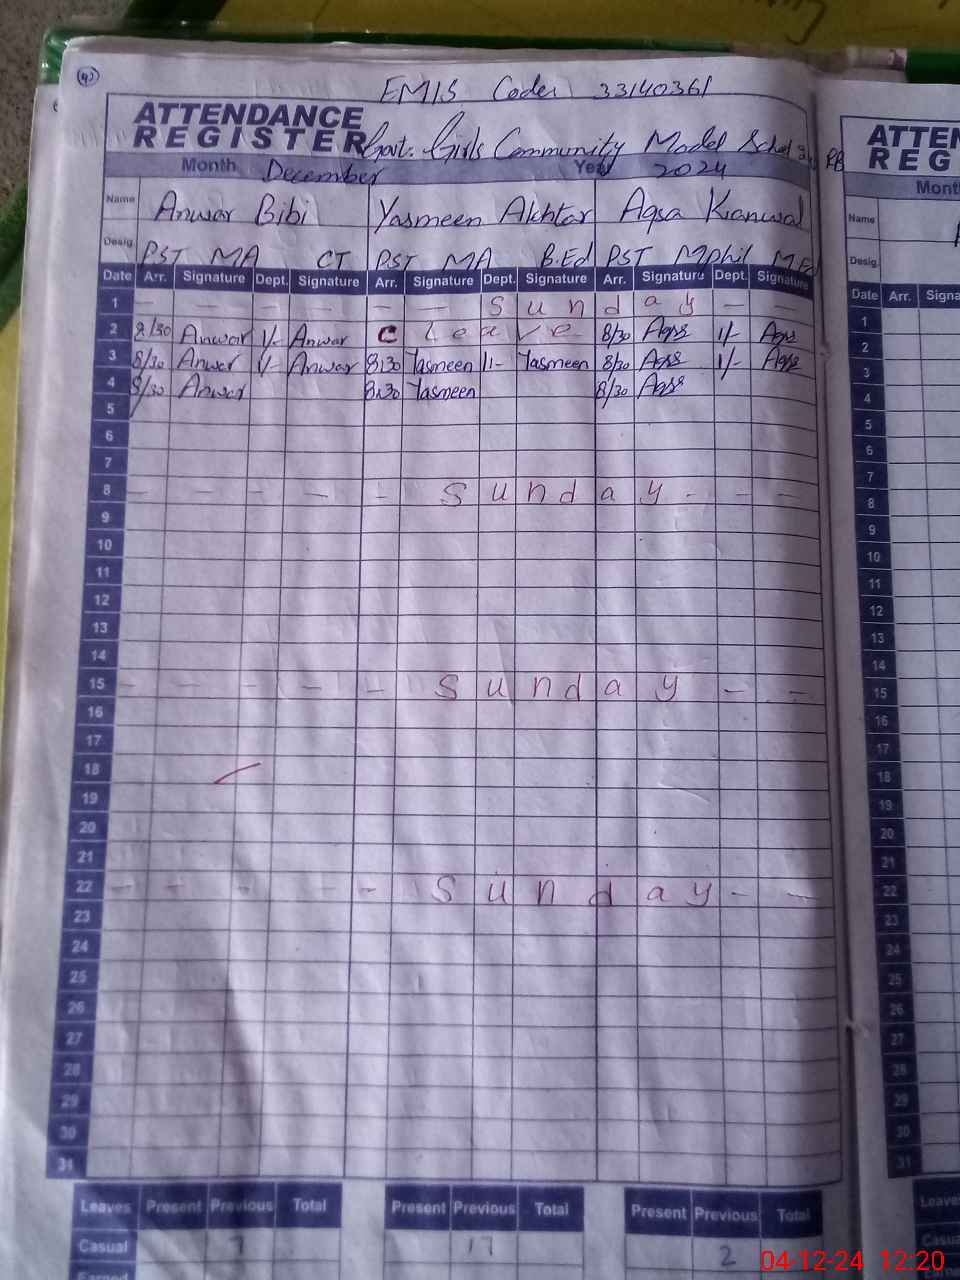 EMIS Code: 33140361
ATTENDANCE
REGISTER Govt. Girls Community Model School
Month December Year 2024
Name Anwar Bibi Yasmeen Akhtar Aqsa Kanwal
Desig. PST MA CT PST MA B.Ed PST Mphil M.Ed
Date Arr. Signature Dept. Signature Arr. Signature Dept. Signature Arr. Signature Dept. Signature
1 - - - - - - - Sunday - -
2 8/30 Anwar 1/- Anwar C Leave 8/30 Aqsa 1/- Aqsa
3 8/30 Anwar 1/- Anwar 8:30 Yasmeen 1- Yasmeen 8/30 Aqsa 1/- Aqsa
4 8/30 Anwar 8:30 Yasmeen 8/30 Aqsa
5
6
7
8 - - - - - Sunday - - -
9
10
11
12
13
14
15 - - - - - Sunday - -
16
17
18
19
20
21
22 - - - - - Sunday - -
23
24
25
26
27
28
29
30
31
Leaves Present Previous Total Present Previous Total Present Previous Total
Casual 7 17 2
ATTEN
REG
Mont
Name
Desig.
Date Arr. Signa
1
2
3
4
5
6
7
8
9
10
11
12
13
14
15
16
17
18
19
20
21
22
23
24
25
26
27
28
29
30
31
Leave
Casua
04-12-24 12:20